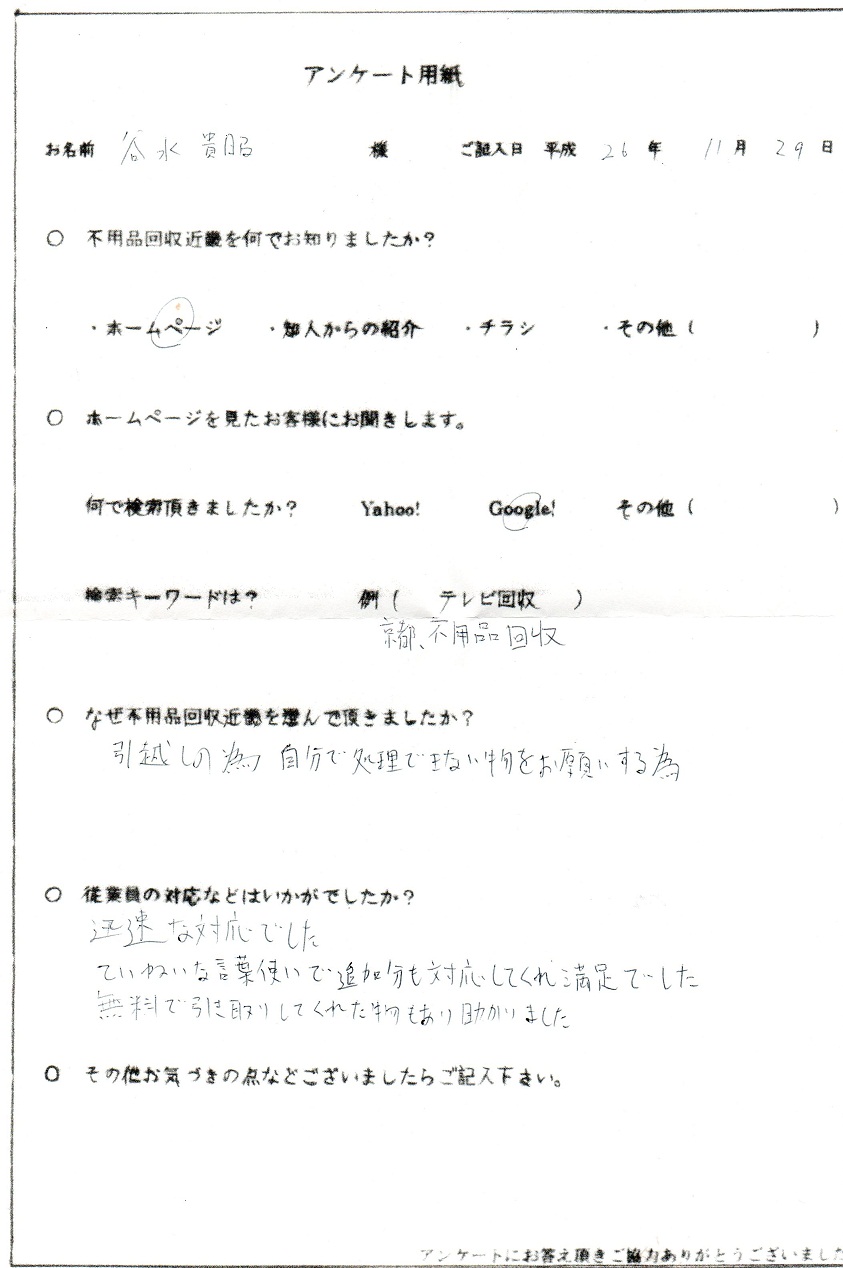 アンケート用紙
お名前 谷水 貴昭 様 ご記入日 平成 26 年 11 月 29 日
○ 不用品回収近畿を何でお知りましたか？
・ホームページ ・知人からの紹介 ・チラシ ・その他（ ）
○ ホームページを見たお客様にお聞きします。
何で検索頂きましたか？ Yahoo! Google! その他（ ）
検索キーワードは？ 例（ テレビ回収 ）
京都、不用品回収
○ なぜ不用品回収近畿を選んで頂きましたか？
引越しの為 自分で処理できない物をお願いする為
○ 従業員の対応などはいかがでしたか？
迅速な対応でした
ていねいな言葉使いで追加分も対応してくれ満足でした
無料で引き取りしてくれた物もあり助かりました
○ その他お気づきの点などございましたらご記入下さい。
アンケートにお答え頂きご協力ありがとうございました